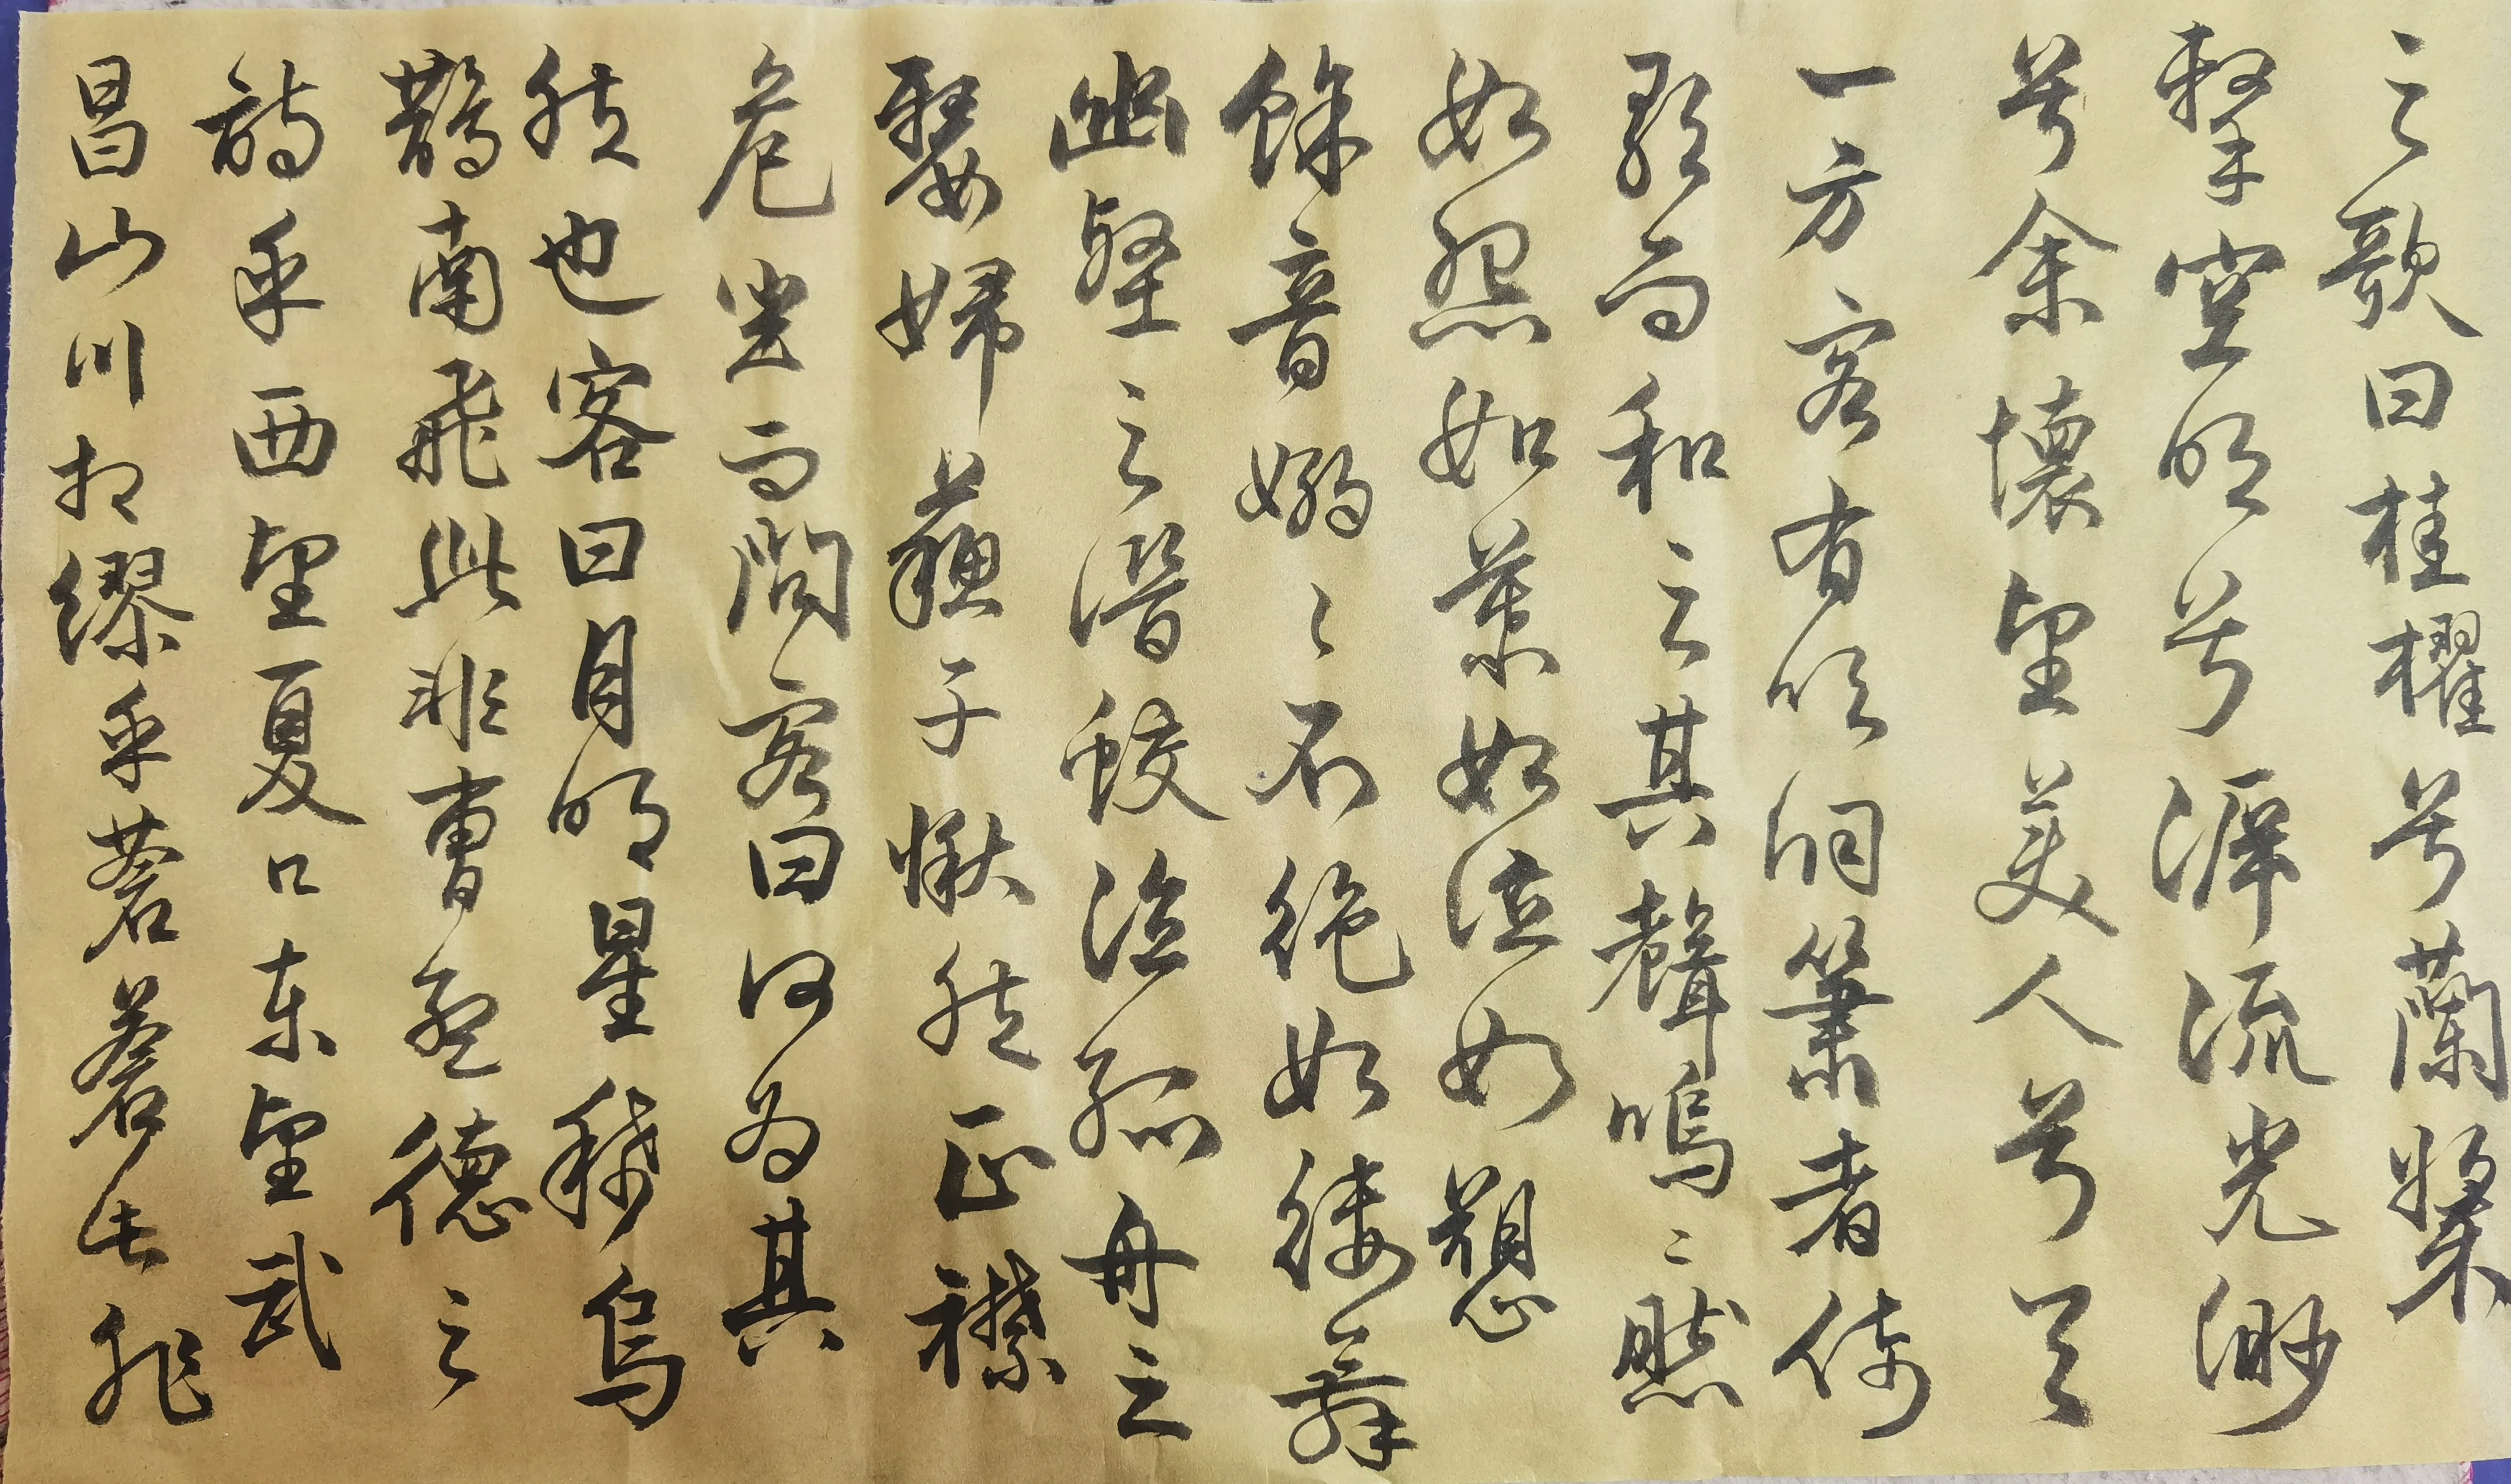 之歌曰桂櫂兮蘭槳
擊空明兮泝流光渺
兮余懷望美人兮天
一方客有吹洞簫者倚
歌而和之其聲嗚〻然
如怨如慕如泣如愬
餘音嫋〻不絕如縷舞
幽壑之潛蛟泣孤舟之
嫠婦蘇子愀然正襟
危坐而問客曰何為其
然也客曰月明星稀烏
鵲南飛此非曹孟德之
詩乎西望夏口東望武
昌山川相繆乎蒼蒼此非